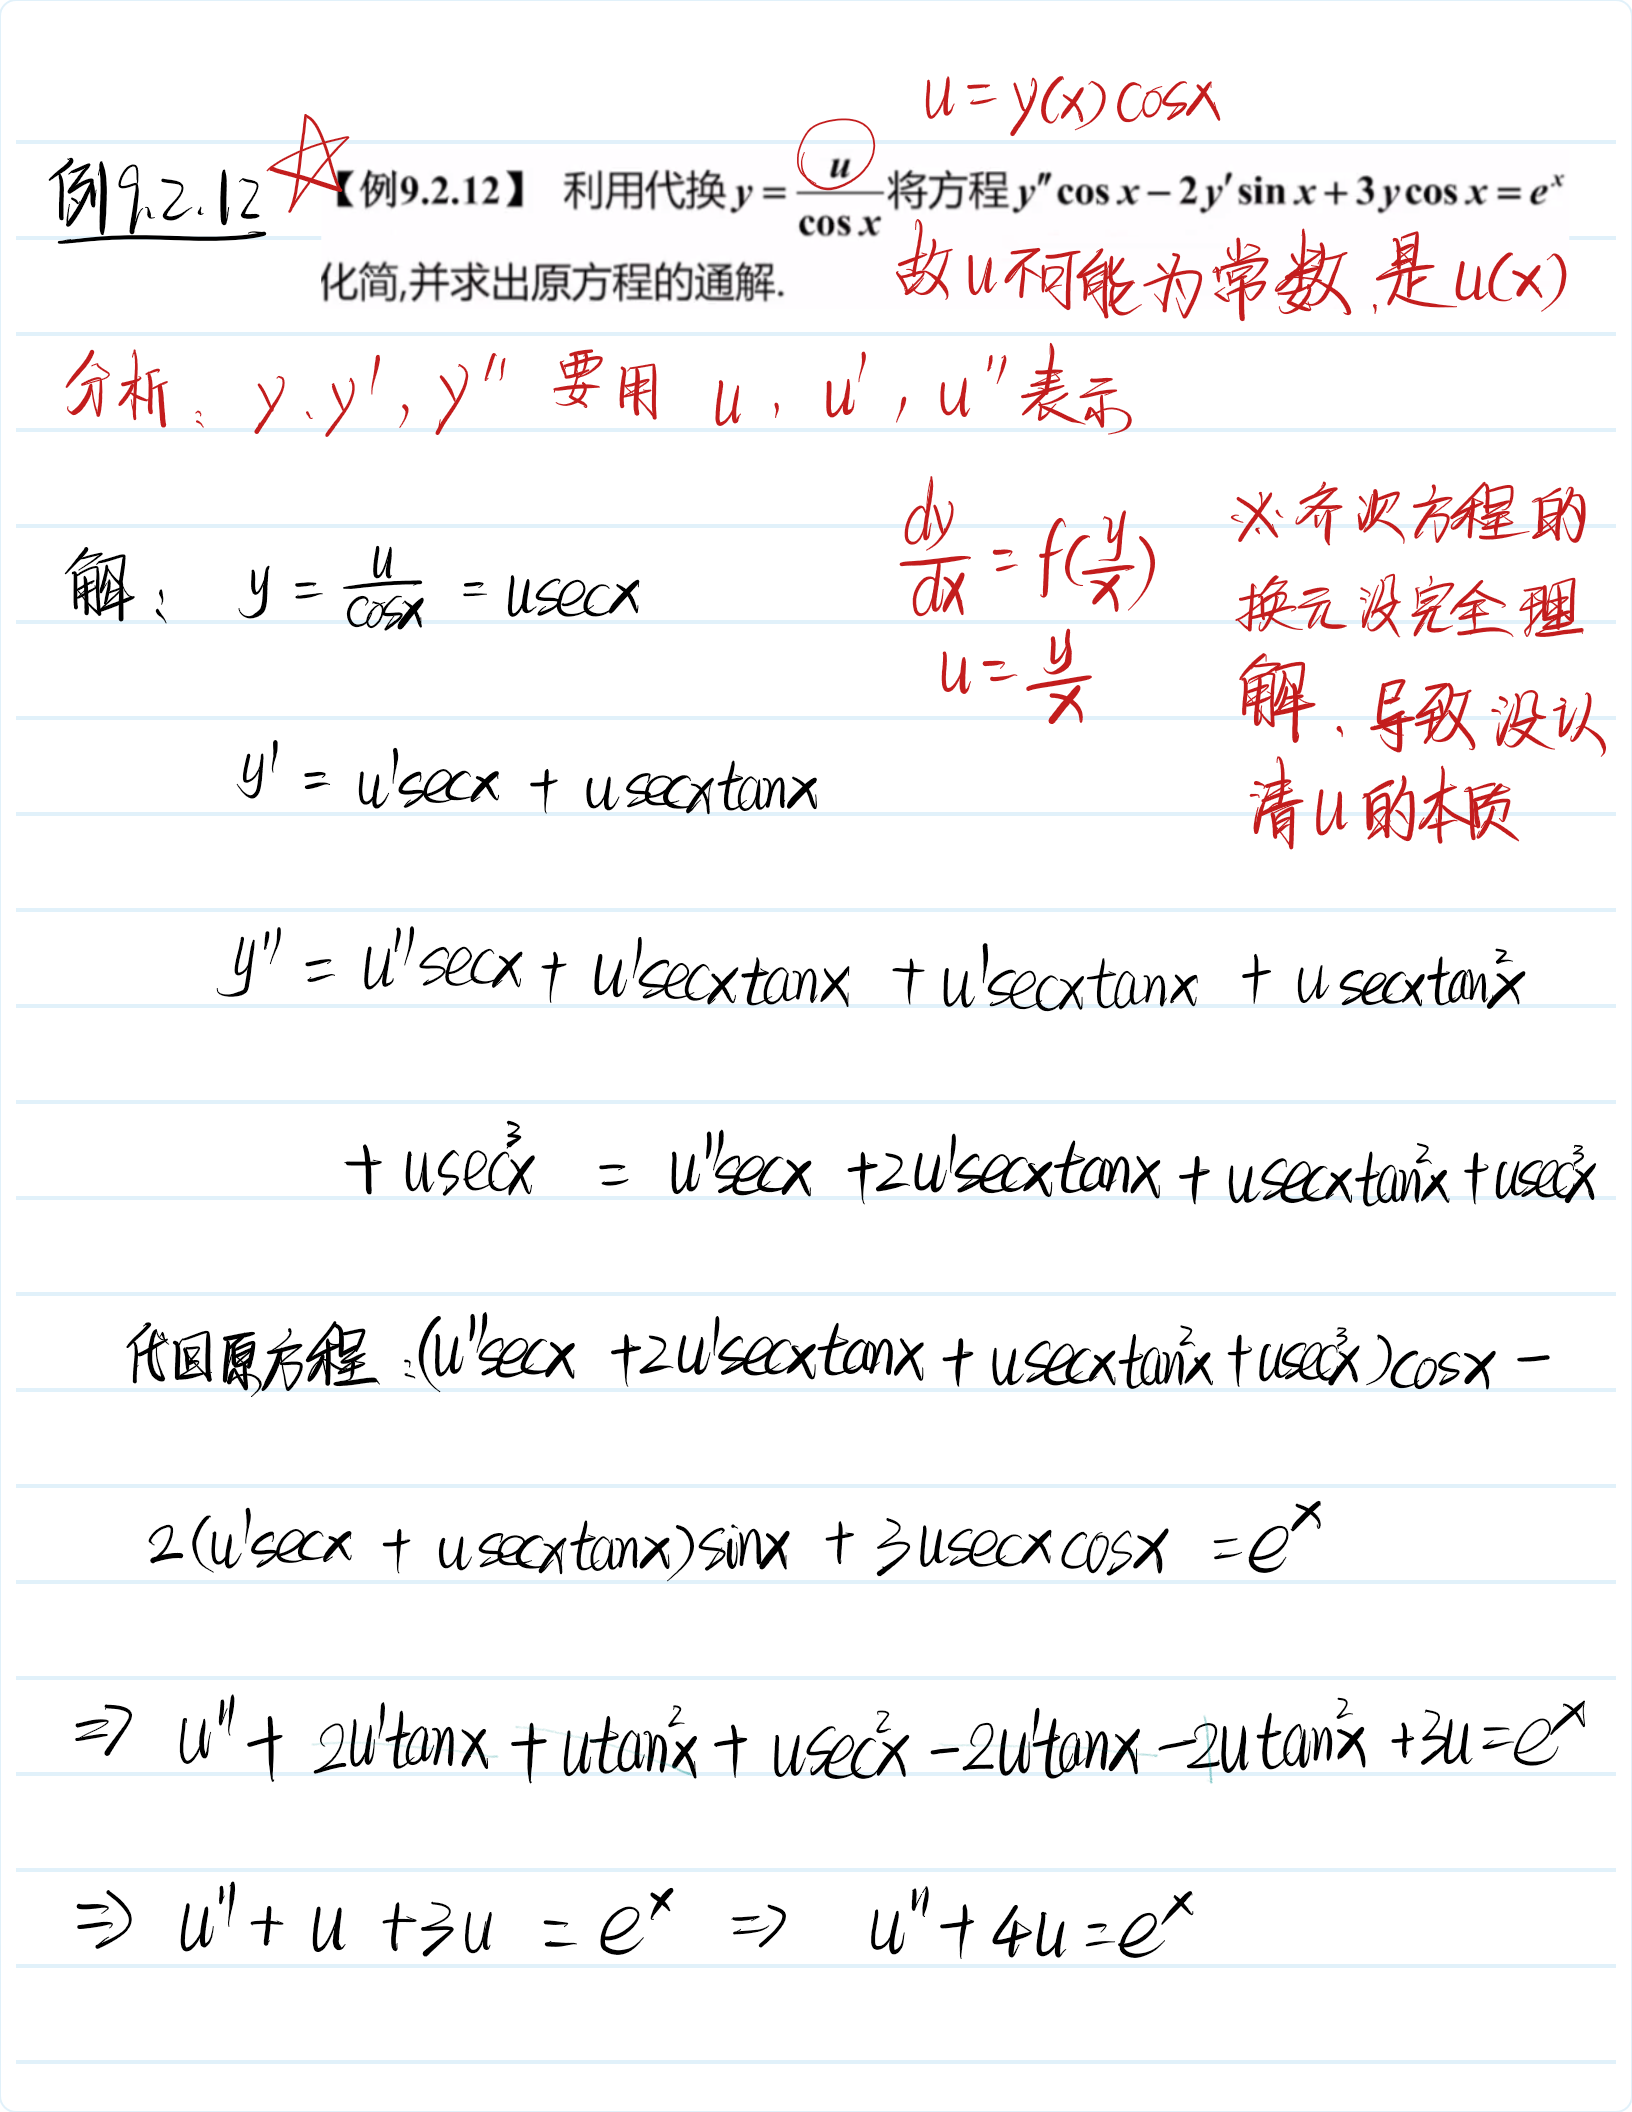 u = y(x) cosx
例9.2.12 ☆ 【例9.2.12】 利用代换 y = u/cos x 将方程 y″cos x − 2y′sin x + 3y cos x = eˣ
化简,并求出原方程的通解.
故u不可能为常数,是u(x)
分析: y、y′, y″ 要用 u, u′, u″ 表示
解: y = u/cosx = usecx
dy/dx = f(y/x)
u = y/x
※齐次方程的
换元没完全理
解、导致没认
清u的本质
y′ = u′secx + usecxtanx
y″ = u″secx + u′secxtanx + u′secxtanx + usecxtan²x
+ usec³x = u″secx + 2u′secxtanx + usecxtan²x + usec³x
代回原方程:(u″secx + 2u′secxtanx + usecxtan²x + usec³x)cosx −
2(u′secx + usecxtanx)sinx + 3usecxcosx = eˣ
⇒ u″ + 2u′tanx + utan²x + usec²x − 2u′tanx − 2utan²x + 3u = eˣ
⇒ u″ + u + 3u = eˣ ⇒ u″ + 4u = eˣ